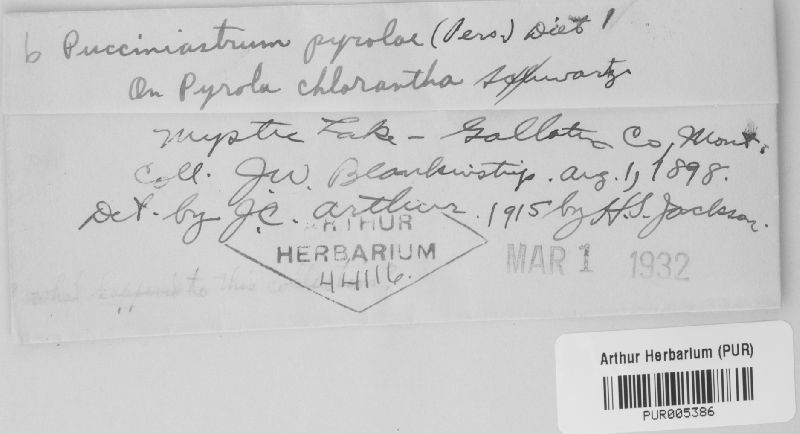 b Pucciniastrum pyrolae (Pers.) Diet!
On Pyrola chlorantha Schwartz
Mystic Lake - Gallatin Co, Mont.
Coll. J.W. Blankinship. Aug. 1, 1898.
Det. by J.C. Arthur. 1915 by H.S. Jackson.
ARTHUR
HERBARIUM
44116.
MAR 1 1932
what happened to this
Arthur Herbarium (PUR)
PUR005386